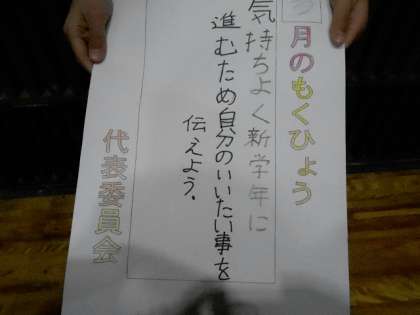 3月のもくひょう
気持ちよく新学年に
進むため自分のいいたい事を
伝えよう.
代表委員会